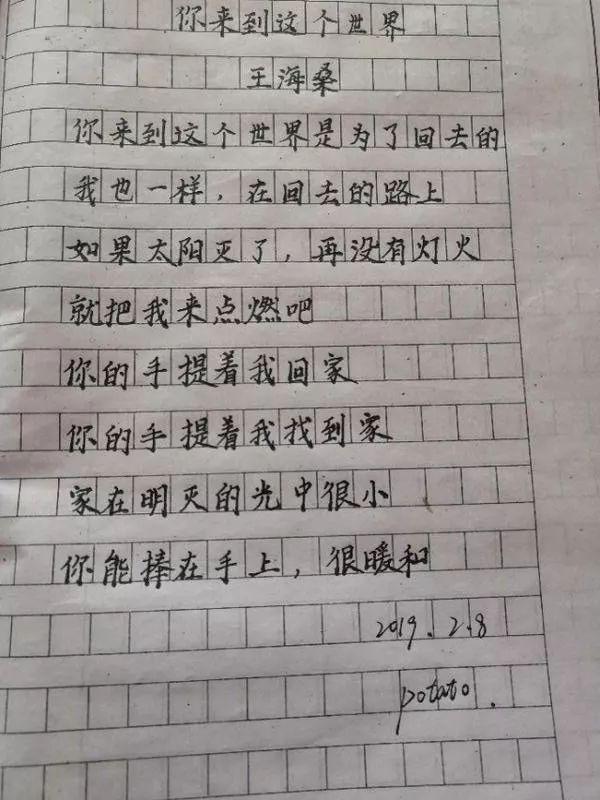 你来到这个世界
王海桑
你来到这个世界是为了回去的
我也一样，在回去的路上
如果太阳灭了，再没有灯火
就把我来点燃吧
你的手提着我回家
你的手提着我找到家
家在明灭的光中很小
你能捧在手上，很暖和
2019.2.8
potato.